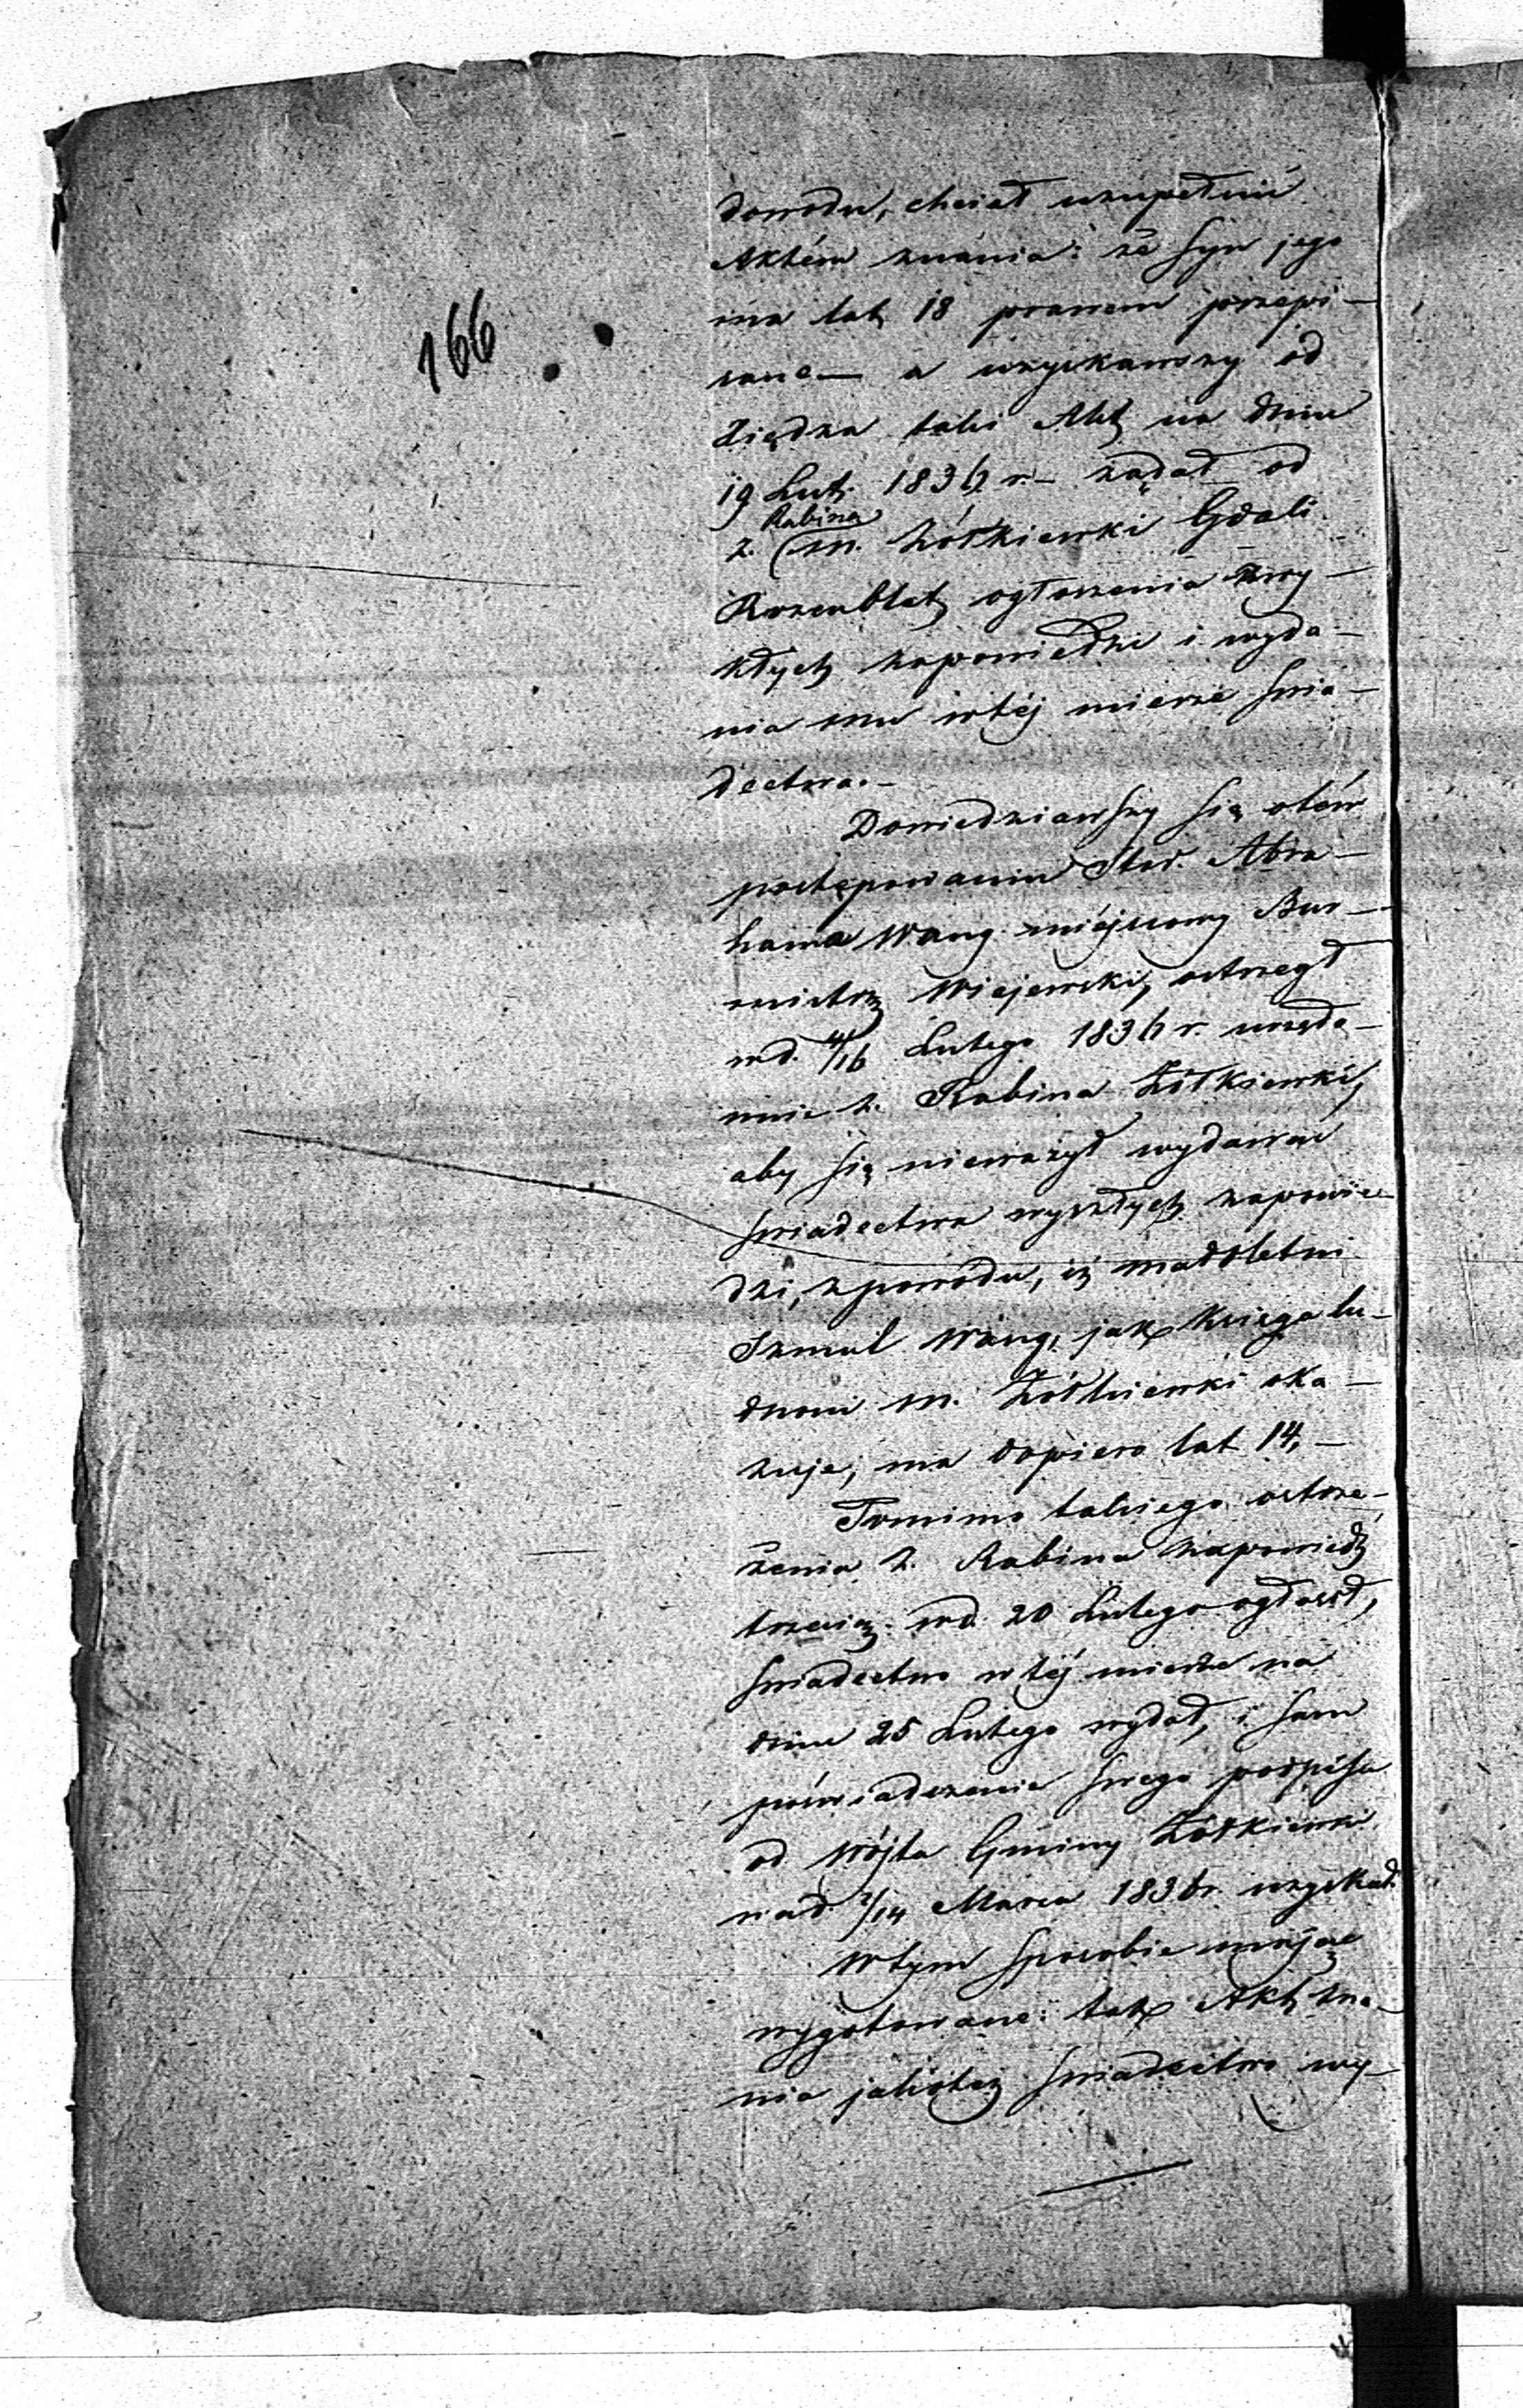 166
dowodu, chciał uzupełnić
Aktém znánia: że syn jego
ma lat 18 prawem przepi-
sane — a uzyskawszy od
Ziędza taki Akt na dniu
19 Lut. 1836 r. — żądał od
Rabina
Z. m. Żółkiewki Gdali
Rozenblat ogłoszenia zwy-
kłych zapowiedzi i wyda-
nia mu wtéj mierze swia-
dectwa. —
Dowiedziawszy się otém
postępowaniu Star. Abra-
hama Wang miéjscowy Bur-
mistrz Wiejewski, ostrzegł
wd. 4/16 Lutego 1836 r. urzędo-
wnie Z. Rabina Żółkiewki,
aby się nieważył wydawać
swiadectwa wyszłych zapowie-
dzi, zpowodu, iż małoletni
Szmul Wang, jak Księga lu-
dnosci m. Żółkiewki oka-
zuje, ma dopiero lat 14, —
Pomimo takiego ostrze-
żenia Z. Rabina zapowiedź
trzecią wd. 20 Lutego ogłosił,
swiadectwo w téj mierze na
dniu 25 Lutego wydał, i sam
póswiadczenie swego podpisu
od Wójta Gminy Żółkiewki
nad. 2/14 Marca 1836 r. uzyskał.
Wtym sposobie mając
wygotowane: tak Akt zna-
nia jakotéż swiadectwo wy-